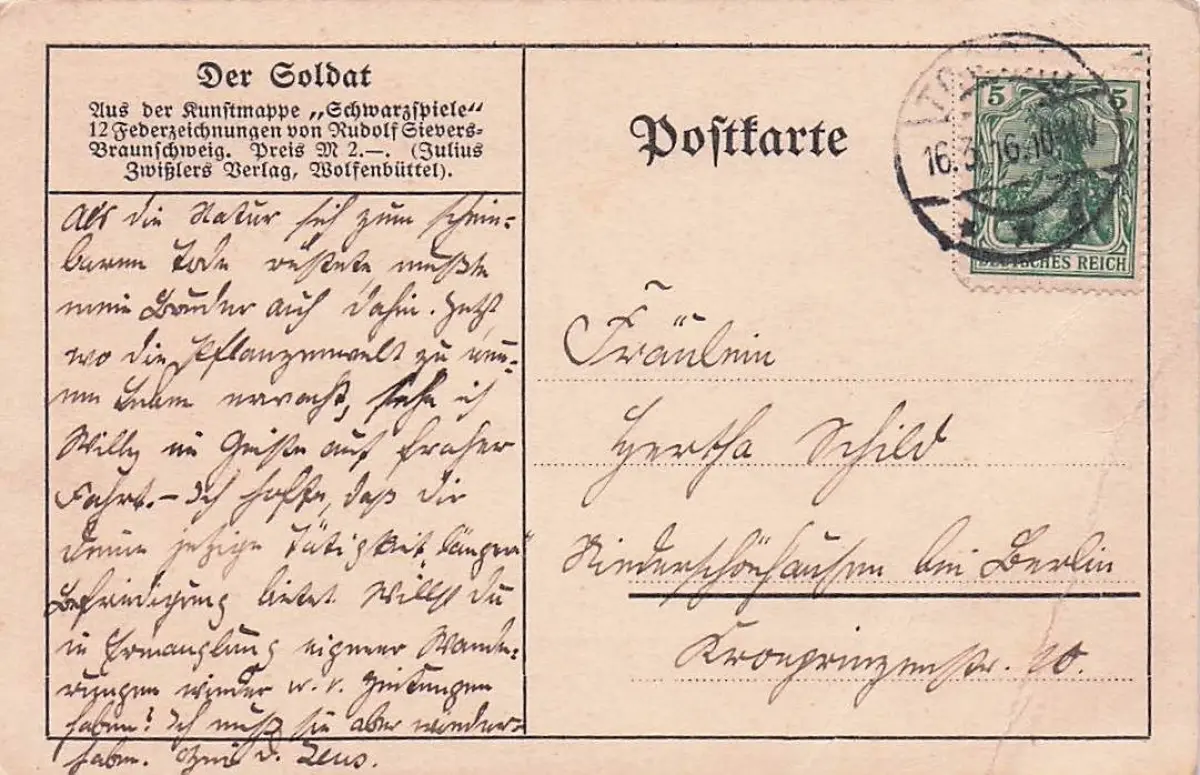 Der Soldat
Aus der Kunstmappe „Schwarzspiele“
12 Federzeichnungen von Rudolf Sievers-
Braunschweig. Preis M 2.—. (Julius
Zwißlers Verlag, Wolfenbüttel).
Als die Natur sich zum schein-
baren Tode rüstete mußte
mein Bruder auch dahin. Jetzt
wo die Pflanzenwelt zu neu-
em Leben erwacht, sehe ich
Willy im Geiste auf froher
Fahrt. – Ich hoffe, daß dir
deine jetzige Tätigkeit längere
Befriedigung bietet. Willst du
in Ermanglung eigener Wande-
rungen wieder w. v. Zeitungen
haben? Ich muß sie aber wieder-
haben. d. Zeus.
Postkarte
5 5
16.3.16.10
DEUTSCHES REICH
Fräulein
Hertha Schild
Niederschönhausen bei Berlin
Kronprinzenstr. 10.